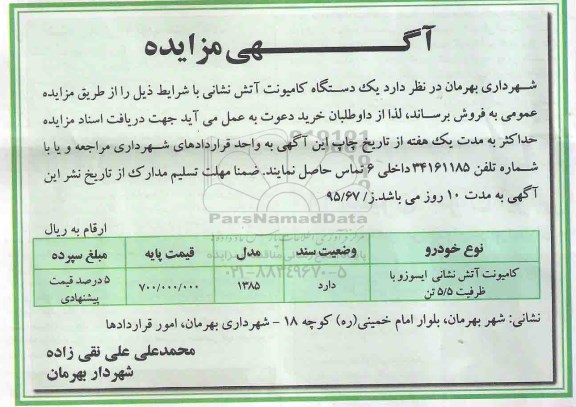 آگهی مزایده
شهرداری بهرمان در نظر دارد یک دستگاه کامیونت آتش نشانی با شرایط ذیل را از طریق مزایده
عمومی به فروش برساند، لذا از داوطلبان خرید دعوت به عمل می آید جهت دریافت اسناد مزایده
حداکثر به مدت یک هفته از تاریخ چاپ این آگهی به واحد قراردادهای شهرداری مراجعه و یا با
شماره تلفن ۳۴۱۶۱۱۸۵ داخلی ۶ تماس حاصل نمایند. ضمنا مهلت تسلیم مدارک از تاریخ نشر این
آگهی به مدت ۱۰ روز می باشد.ز/ ۹۵/۶۷
ParsNamadData
ارقام به ریال
نوع خودرو وضعیت سند مدل قیمت پایه مبلغ سپرده
کامیونت آتش نشانی ایسوزو با ظرفیت ۵/۵ تن دارد ۱۳۸۵ ۷۰۰/۰۰۰/۰۰۰ ۵ درصد قیمت پیشنهادی
۰۲۱-۸۸۳۴۹۶۷۰-۵
نشانی: شهر بهرمان، بلوار امام خمینی(ره) کوچه ۱۸ - شهرداری بهرمان، امور قراردادها
محمدعلی علی نقی زاده
شهردار بهرمان